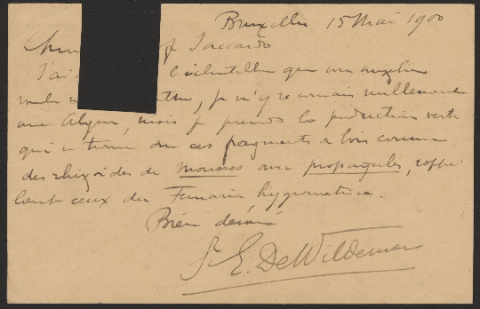 Bruxelles 15 Mai 1900
Saccardo
J'ai l'échantillon que
je n'y reconnais nullement
une Algue, mais je prends la production verte
qui se trouve sur ces fragments de bois comme
des rhizoïdes de mousses avec propagules, rappe-
lant ceux du Funaria hygrometrica.
Bien dévoué
E. De Wildeman